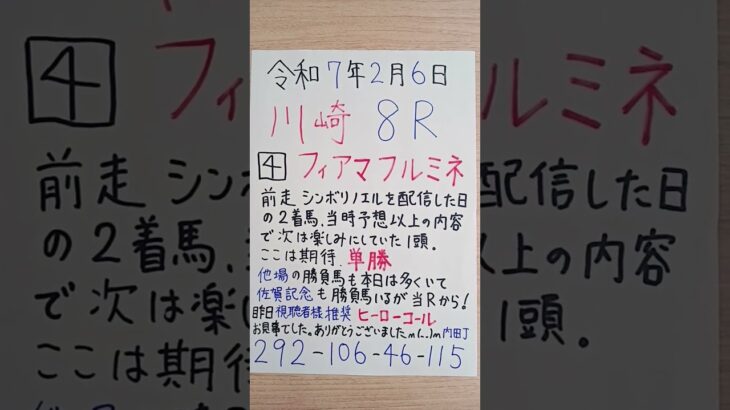 令和7年2月6日
川崎 8R
4 フィアマフルミネ
前走 シンボリノエルを配信した日
の2着馬、当時予想以上の内容
で次は楽しみにしていた1頭。
ここは期待、単勝
他場の勝負馬も本日は多くいて
佐賀記念も勝負馬いるが当Rから!
昨日視聴者様推奨 ヒーローコール
お見事でした。ありがとうございましたm(_ _)m 内田丁
292-106-46-115